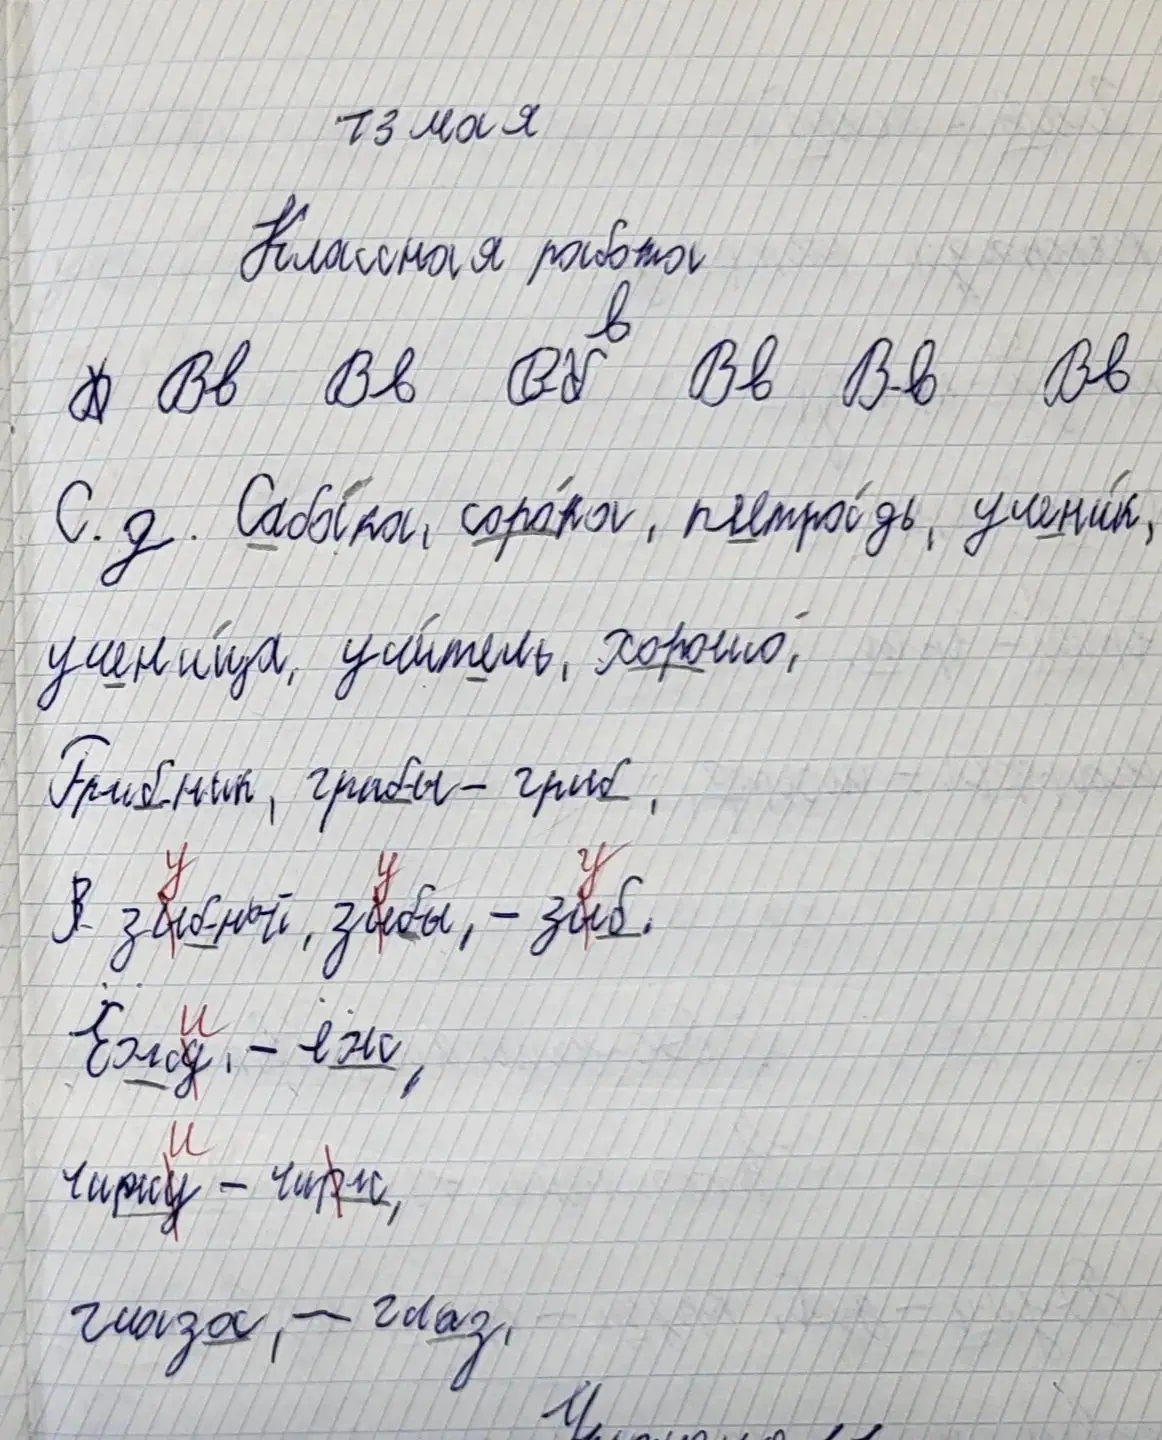 13 мая
Классная работа
в
Вв Вв Вб Вв Вв Вв
С. д. Сабака, сорока, тетрадь, ученик,
ученица, учитель, хорошо,
Грибник, грибы - гриб,
у у у
В. зибный, зибы, - зиб.
и
- ёж,
и
чижу - чиж,
глаза, - глаз,